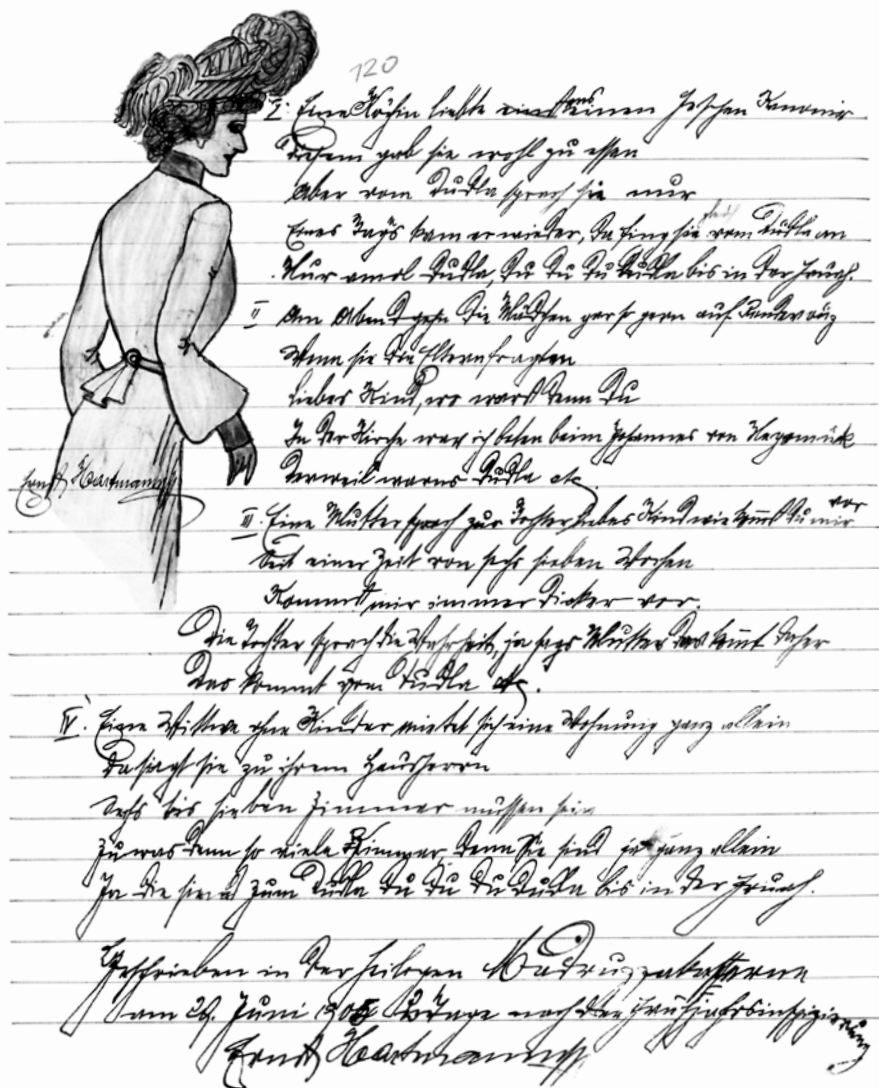 120
I. Eine Köchin liebte einst einen feschen Kanonier
Diesem gab sie wohl zu essen
Aber vom Dudla sprach sie nur
Eines Tags kam er wieder, da fing sie vom Dudla an
Nur amol Dudla, Du Du Du Dudla bis in der Fruah.
II Am Abend gehn die Mädchen gar so gern auf Randevouz
Wenn sie die Eltern fragten
Liebes Kind, wo warst denn Du
In der Kirche war ich beten beim Johannes von Nepomuk
Derweil warns Dudla etc
Ernst Hartmann
III. Eine Mutter sprach zur Tochter liebes Kind wie kommst du mir vor
Seit einer Zeit von sechs sieben Wochen
Kommst mir immer dicker vor.
Die Tochter sprach die Wahrheit, ja sags Mutter das kommt daher
Das kommt vom Dudla etc.
IV. Eine Wittwe ohne Kinder mietet sich eine Wohnung ganz allein
Da sagt sie zu ihrem Hausherrn
Sechs bis sieben Zimmer müssen sein
Zu was denn so viele Zimmer, denn Sie sind ja ganz allein
Ja die sind zum Dudla Du Du Du Dudla bis in der Fruah.
Geschrieben in der heiligen Madruzzakaserne
am 29. Juni 1905 Tage nach der Frühjahrsinspizierung
Ernst Hartmann